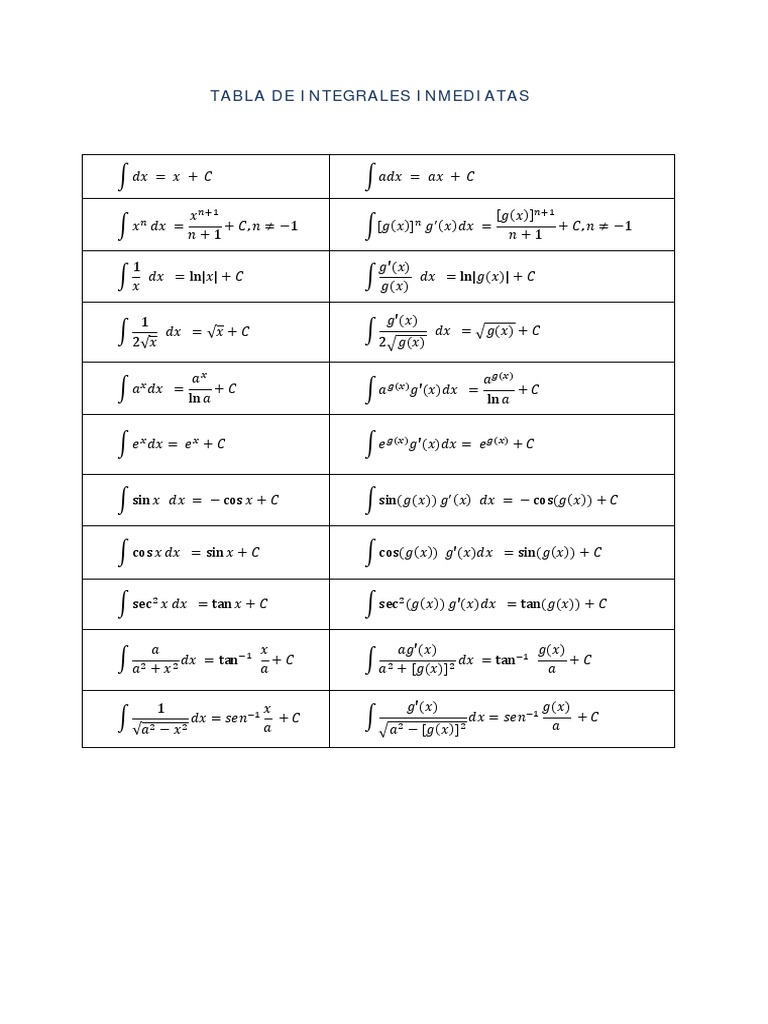 TABLA DE INTEGRALES INMEDIATAS
∫ dx = x + C
∫ adx = ax + C
∫ xⁿ dx = xⁿ⁺¹/(n + 1) + C, n ≠ −1
∫ [g(x)]ⁿ g′(x)dx = [g(x)]ⁿ⁺¹/(n + 1) + C, n ≠ −1
∫ 1/x dx = ln|x| + C
∫ g′(x)/g(x) dx = ln|g(x)| + C
∫ 1/(2√x) dx = √x + C
∫ g′(x)/(2√g(x)) dx = √g(x) + C
∫ aˣdx = aˣ/ln a + C
∫ a^g(x) g′(x)dx = a^g(x)/ln a + C
∫ eˣdx = eˣ + C
∫ e^g(x) g′(x)dx = e^g(x) + C
∫ sin x dx = − cos x + C
∫ sin(g(x)) g′(x) dx = − cos(g(x)) + C
∫ cos x dx = sin x + C
∫ cos(g(x)) g′(x)dx = sin(g(x)) + C
∫ sec² x dx = tan x + C
∫ sec²(g(x)) g′(x)dx = tan(g(x)) + C
∫ a/(a² + x²) dx = tan⁻¹ x/a + C
∫ ag′(x)/(a² + [g(x)]²) dx = tan⁻¹ g(x)/a + C
∫ 1/√(a² − x²) dx = sen⁻¹ x/a + C
∫ g′(x)/√(a² − [g(x)]²) dx = sen⁻¹ g(x)/a + C